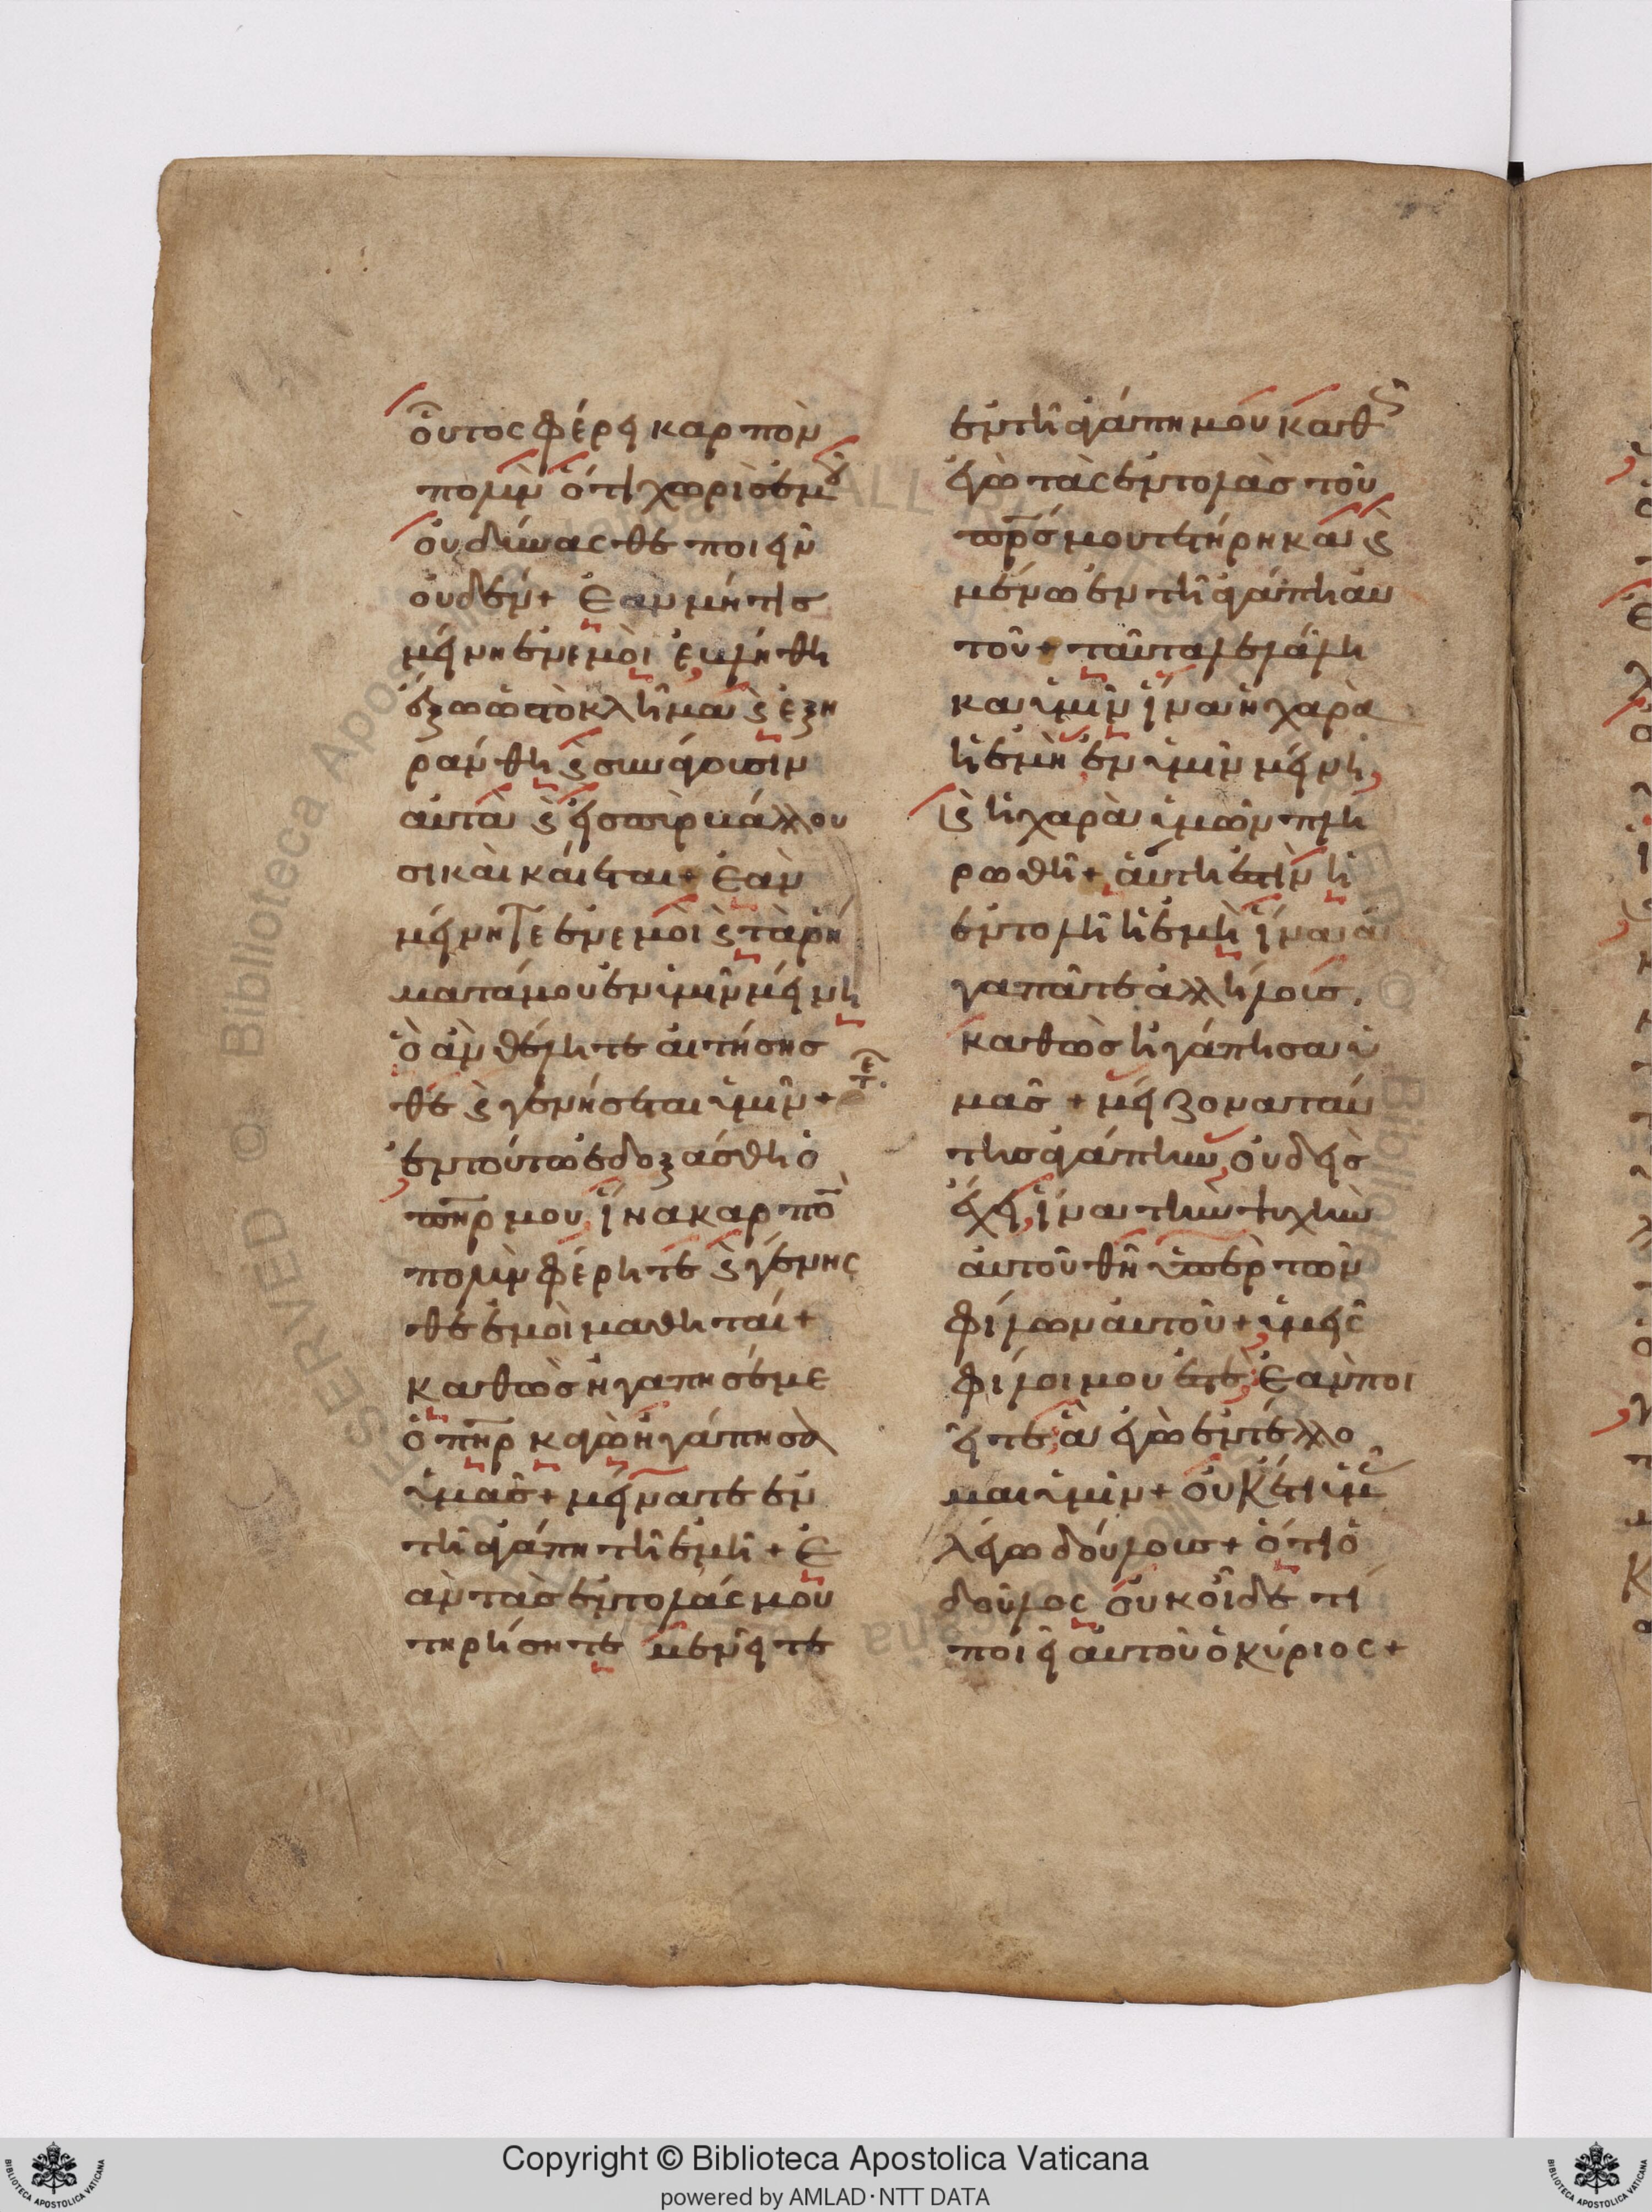 οὗτος φέρει καρπὸν
πολὺν ὅτι χωρὶς ἐμοῦ
οὐ δύνασθε ποιεῖν
οὐδέν + Ἐὰν μή τις
μείνη ἐν ἐμοὶ ἐβλήθη
ἔξω ὡς τὸ κλῆμα ϗ ἐξη
ράνθη ϗ συνάγουσιν
αὐτὰ ϗ εἰς πῦρ βάλλου
σι καὶ καίεται + Ἐὰν
μείνητε ἐν ἐμοὶ ϗ τὰ ῥή
ματά μου ἐν ὑμῖν μείνη
ὃ ἂν θέλητε αἰτήσησ
θε ϗ γενήσεται ὑμῖν +
ἐν τούτω ἐδοξάσθη ὁ
πηρ μου, ἵνα καρπὸ
πολὺν φέρητε ϗ γένησ
θε ἐμοὶ μαθηταί +
καθὼς ἠγάπησέ με
ὁ πηρ κἀγὼ ἠγάπησα
ὑμᾶς + μείνατε ἐν
τῆ ἀγάπη τῆ ἐμῆ + Ἐ
ὰν τὰς ἐντολάς μου
τηρήσητε μενεῖτε
ἐν τῆ ἀγάπη μου καθὼς
ἐγὼ τὰς ἐντολὰς τοῦ
πρς μου τετήρηκα ϗ
μένω ἐν τῆ ἀγάπη αὐ
τοῦ + ταῦτα λελάλη
κα ὑμῖν ἵνα ἡ χαρὰ
ἡ ἐμὴ ἐν ὑμῖν μείνη,
ϗ ἡ χαρὰ ὑμῶν πλη
ρωθῆ + αὕτη ἐστὶν ἡ
ἐντολὴ ἡ ἐμὴ ἵνα ἀ
γαπᾶτε ἀλλήλους.
καθὼς ἠγάπησα ὑ
μᾶς + μείζονα ταύ
της ἀγάπην, οὐδεὶς
ἔχει, ἵνα τὴν ψυχὴν
αὐτοῦ θῆ ὑπὲρ τῶν
φίλων αὐτοῦ + ὑμεῖς
φίλοι μου ἐστὲ, ἐὰν ποι
εῖτε, ἃ ἐγὼ ἐντέλλο
μαι ὑμῖν + οὐκέτι ὑμᾶς
λέγω δούλους + ὅτι ὁ
δοῦλος οὐκ οἶδε τί
ποιεῖ αὐτοῦ ὁ κύριος +